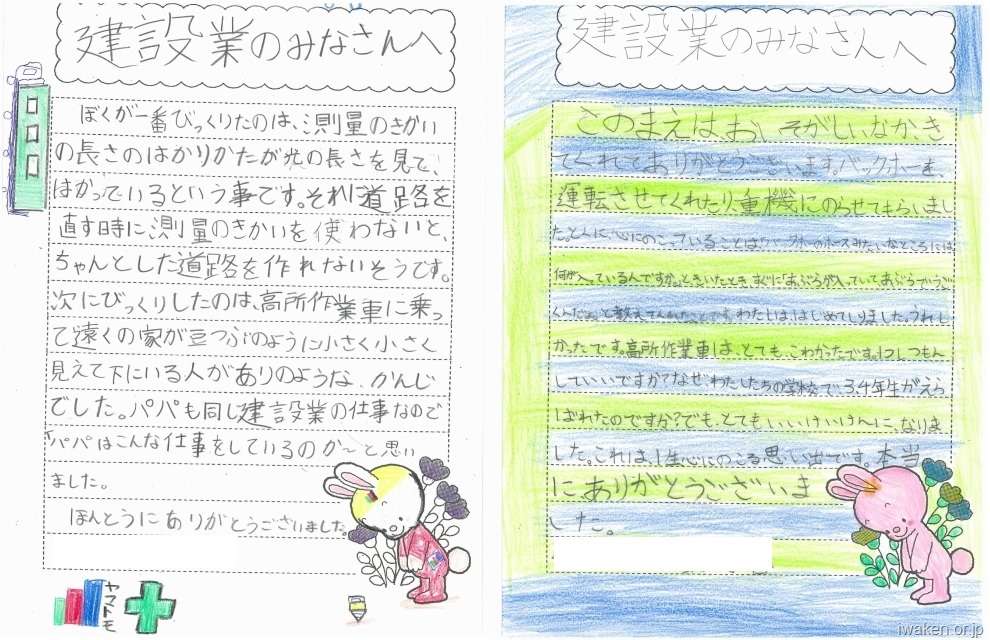 建設業のみなさんへ
ぼくが一番びっくりたのは、測量のきかい
の長さのはかりかたが光の長さを見て、
はかっているという事です。それに道路を
直す時に測量のきかいを使わないと、
ちゃんとした道路を作れないそうです。
次にびっくりしたのは、高所作業車に乗っ
て遠くの家が豆つぶのように小さく小さく
見えて下にいる人がありのような、かんじ
でした。パパも同じ建設業の仕事なので
「パパはこんな仕事をしているのか～と思い
ました。
ほんとうにありがとうございました。
ヤマトモ
建設業のみなさんへ
このまえは、おいそがしいなかき
てくれてありがとうございます。バックホーを、
運転させてくれたり、重機にのらせてもらいまし
た。とくに心にのこっていることは「バックホーのホースみたいなところには
何が入っているんですか。」ときいたとき、すぐに「あぶらが入っていてあぶらでうごく
んだよ。」と教えてくれたことです。わたしははじめてしりました。うれし
かったです。高所作業車は、とても、こわかったです。1つしつもん
していいですか？なぜわたしたちの学校で3.4年生がえら
ばれたのですか？でも、とてもいいけいけんに、なりま
した。これは1生心にのこる思い出です。本当
にありがとうございま
した。
iwaken.or.jp